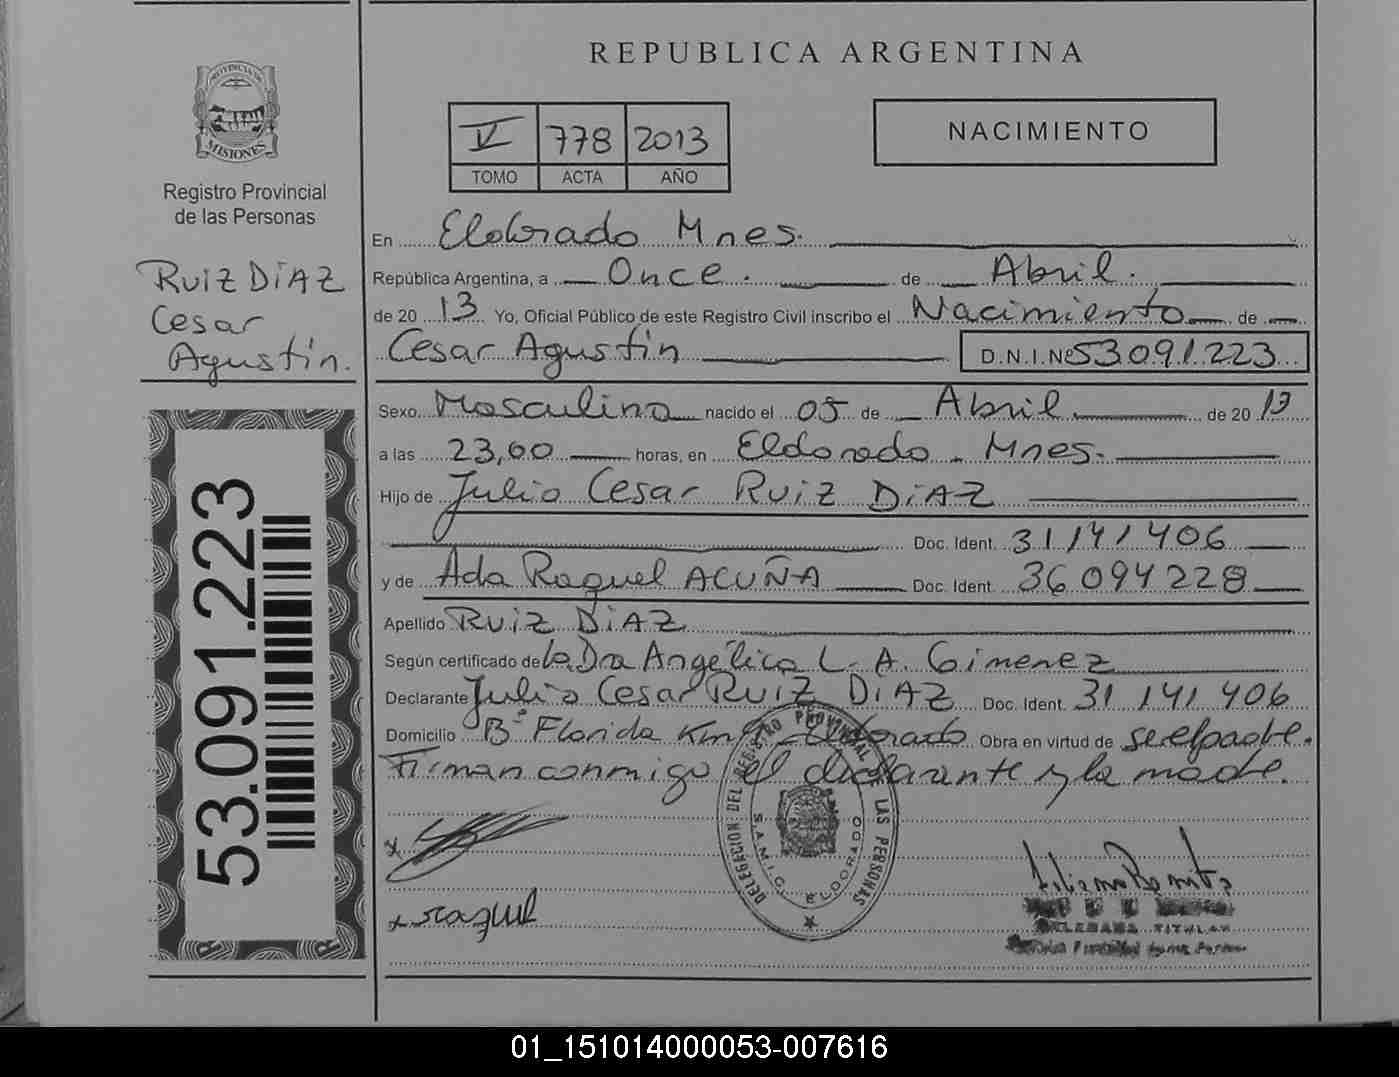 REPUBLICA ARGENTINA
PROVINCIA DE
MISIONES
Registro Provincial
de las Personas
RUIZ DIAZ
Cesar
Agustín.
53.091.223
V 778 2013
TOMO ACTA AÑO
NACIMIENTO
En Eldorado Mnes.
República Argentina, a Once. de Abril.
de 20 13 Yo, Oficial Público de este Registro Civil inscribo el Nacimiento de
Cesar Agustín D.N.I.Nº 53.091.223
Sexo Masculino nacido el 05 de Abril de 20 13
a las 23,00 horas, en Eldorado - Mnes.
Hijo de Julio Cesar RUIZ DIAZ
Doc. Ident. 31 141 406
y de Ada Raquel ACUÑA Doc. Ident. 36 094 228
Apellido RUIZ DIAZ
Según certificado de la Dra Angélica L. A. Gimenez
Declarante Julio Cesar RUIZ DIAZ Doc. Ident. 31 141 406
Domicilio Bº Florida Km Eldorado Obra en virtud de ser el padre.
Firman conmigo el declarante y la madre.
DELEGACION DEL REGISTRO PROVINCIAL DE LAS PERSONAS
S.A.M.I.C. ELDORADO
x
x raquel
TITULAR
01_151014000053-007616